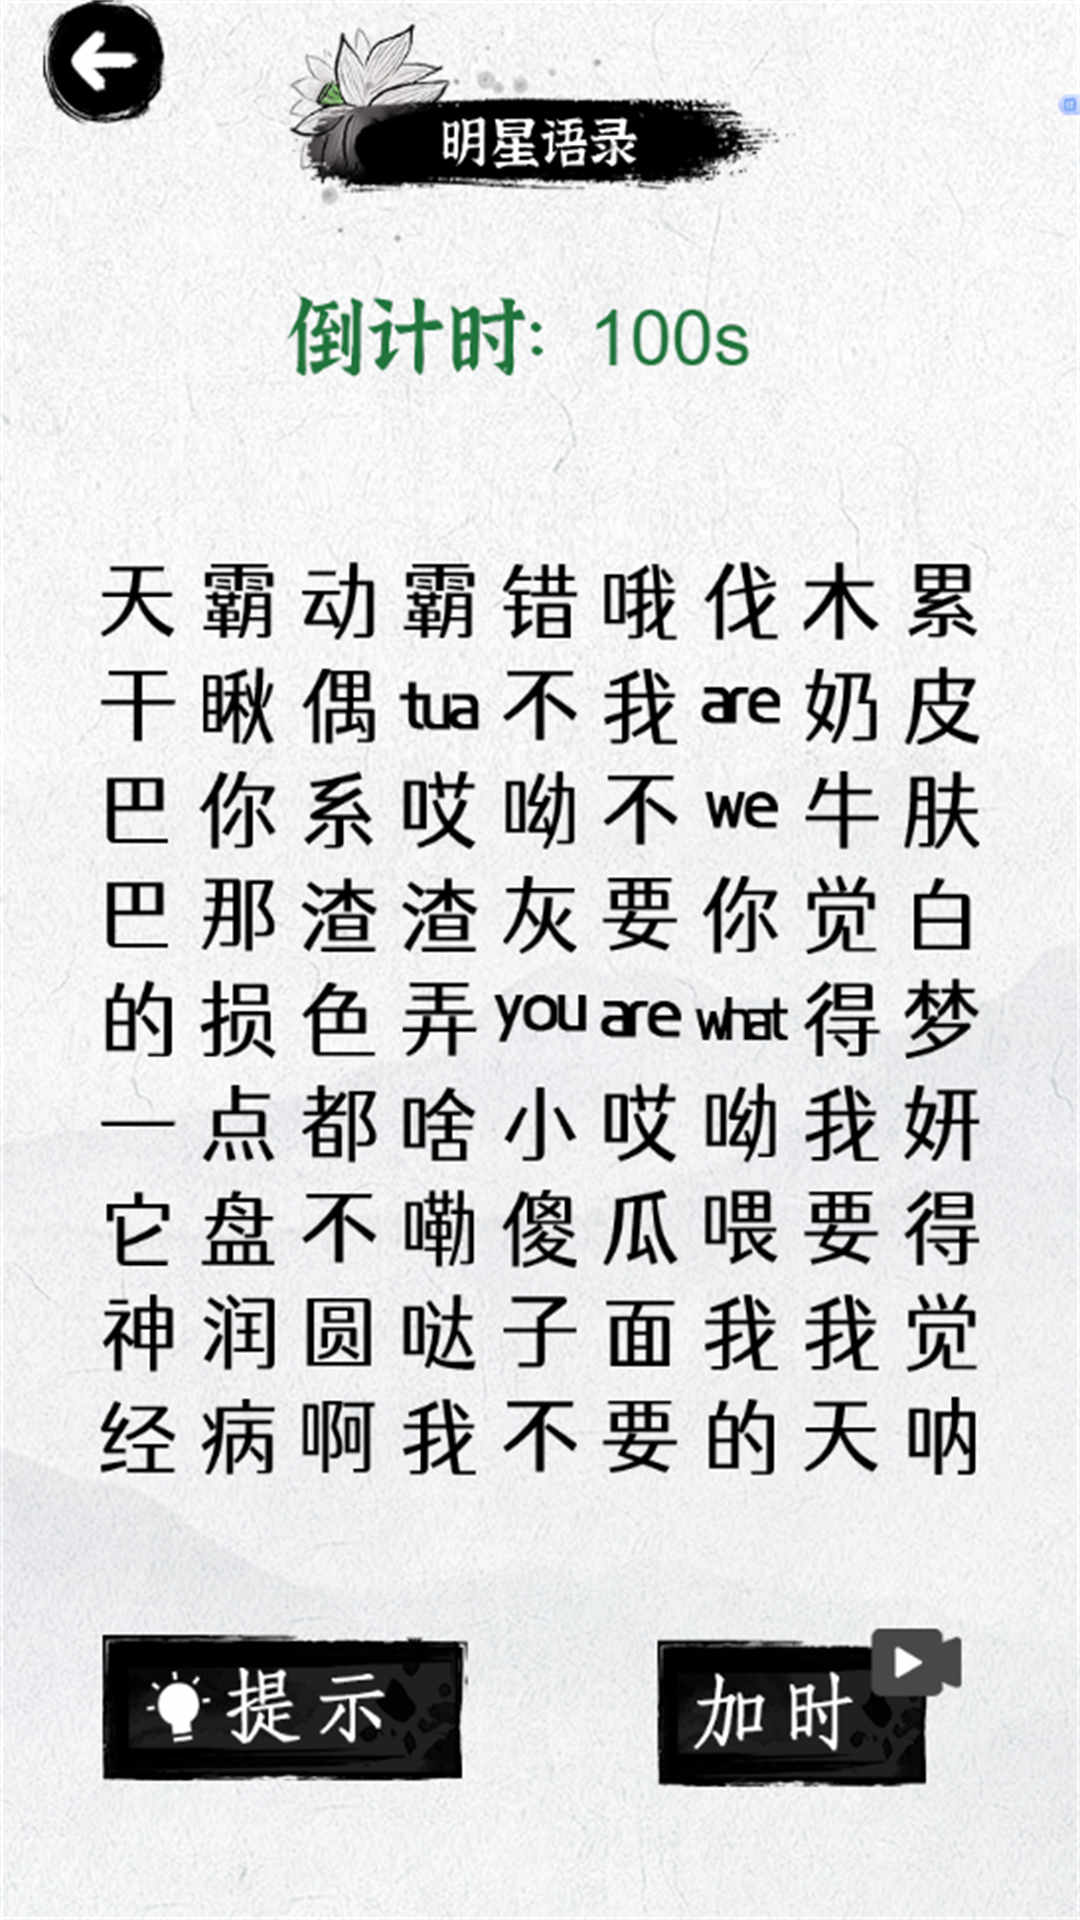 明星语录
倒计时：100s
天霸动霸错哦伐木累
干瞅偶tua不我are奶皮
巴你系哎呦不we牛肤
巴那渣渣灰要你觉白
的损色弄you are what得梦
一点都啥小哎呦我妍
它盘不嘞傻瓜喂要得
神润圆哒子面我我觉
经病啊我不要的天呐
提示
加时